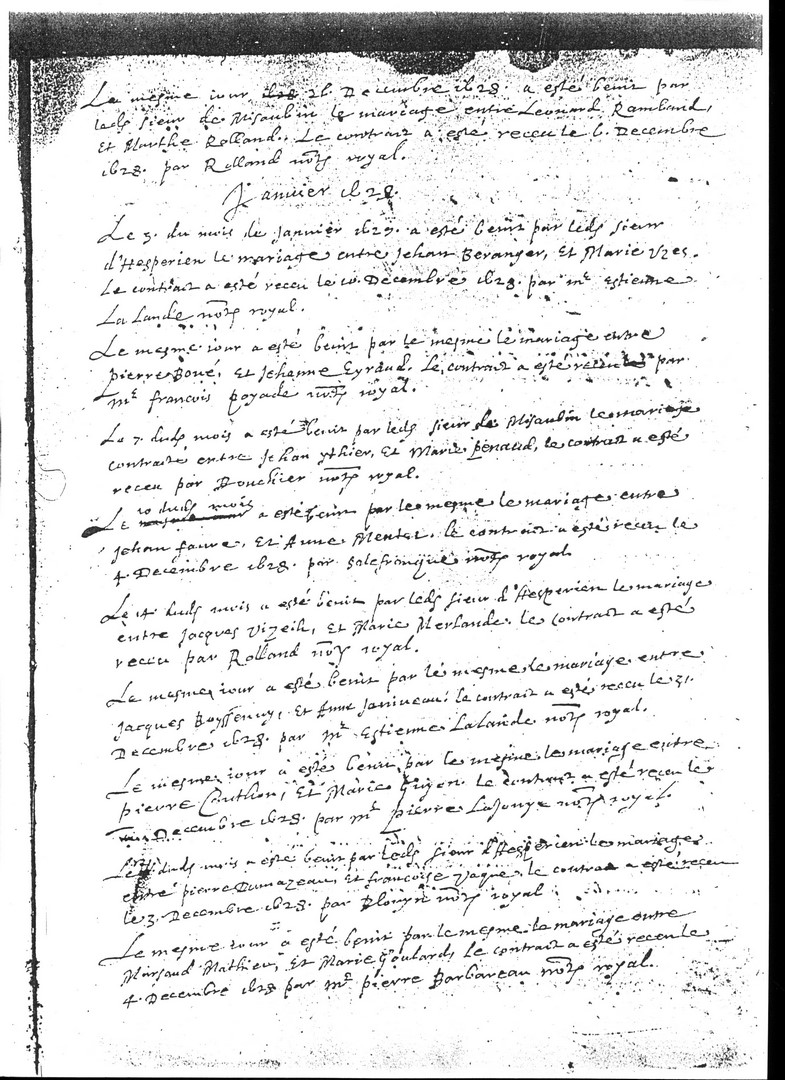 Le mesme iour 26 Decembre 1628. a esté benit par
ledt sieur de Misaubin le mariage entre Leonard Rambaud,
Et Marthe Rolland. Le contrait a esté receu le 6. Decembre
1628. par Rolland notre royal.
Janvier 1628.
Le 3. du mois de Janvier 1629. a esté benit par ledt sieur
d'Hesperien le mariage entre Jehan Beranger, Et Marie Vzes.
Le contrait a esté receu le 10. Decembre 1628. par me Estienne
La Lande notre royal.
Le mesme iour a esté benit par le mesme le mariage entre
pierre Boue, Et Jehanne Eyraud. le contrait a esté receu par
me francois poyade notre royal.
Le 7. dudt mois a esté benit par ledt sieur de Misaubin le mariage
contraité entre Jehan ythier, Et Marie penaud, le contrait a esté
receu par Bouchier notre royal.
10 dudt mois
Le a esté benit par le mesme le mariage entre
Jehan faure, Et Anne Mentet. le contrait a esté receu le
4. Decembre 1628. par Salefranque notre royal
Le 14. dudt mois a esté benit par ledt sieur d'Hesperien le mariage
entre Jacques Vizeih, Et Marie Merlande. le contrait a esté
receu par Rolland notre royal.
Le mesme iour a esté benit par le mesme le mariage entre
Jacques Boyssenny, Et Anne Janiveau. le contrait a esté receu le 31.
Decembre 1628. par me Estienne Lalande notre royal.
Le mesme iour a esté benit par le mesme le mariage entre
pierre Couthon, Et Marie Guyon. le contrait a esté receu le
Decembre 1628. par me pierre Lajonye notre royal.
Le dudt mois a esté benit par ledt sieur d'Hesperien le mariage
entre pierre Dumazeau, Et francoise Jaque, le contrait a esté receu
le 3. Decembre 1628. par Blouyn notre royal
Le mesme iour a esté benit par le mesme le mariage entre
Marsaud Mathieu, Et Marie Goulard, le contrait a esté receu le
4. Decembre 1628 par me pierre Barbareau notre royal.